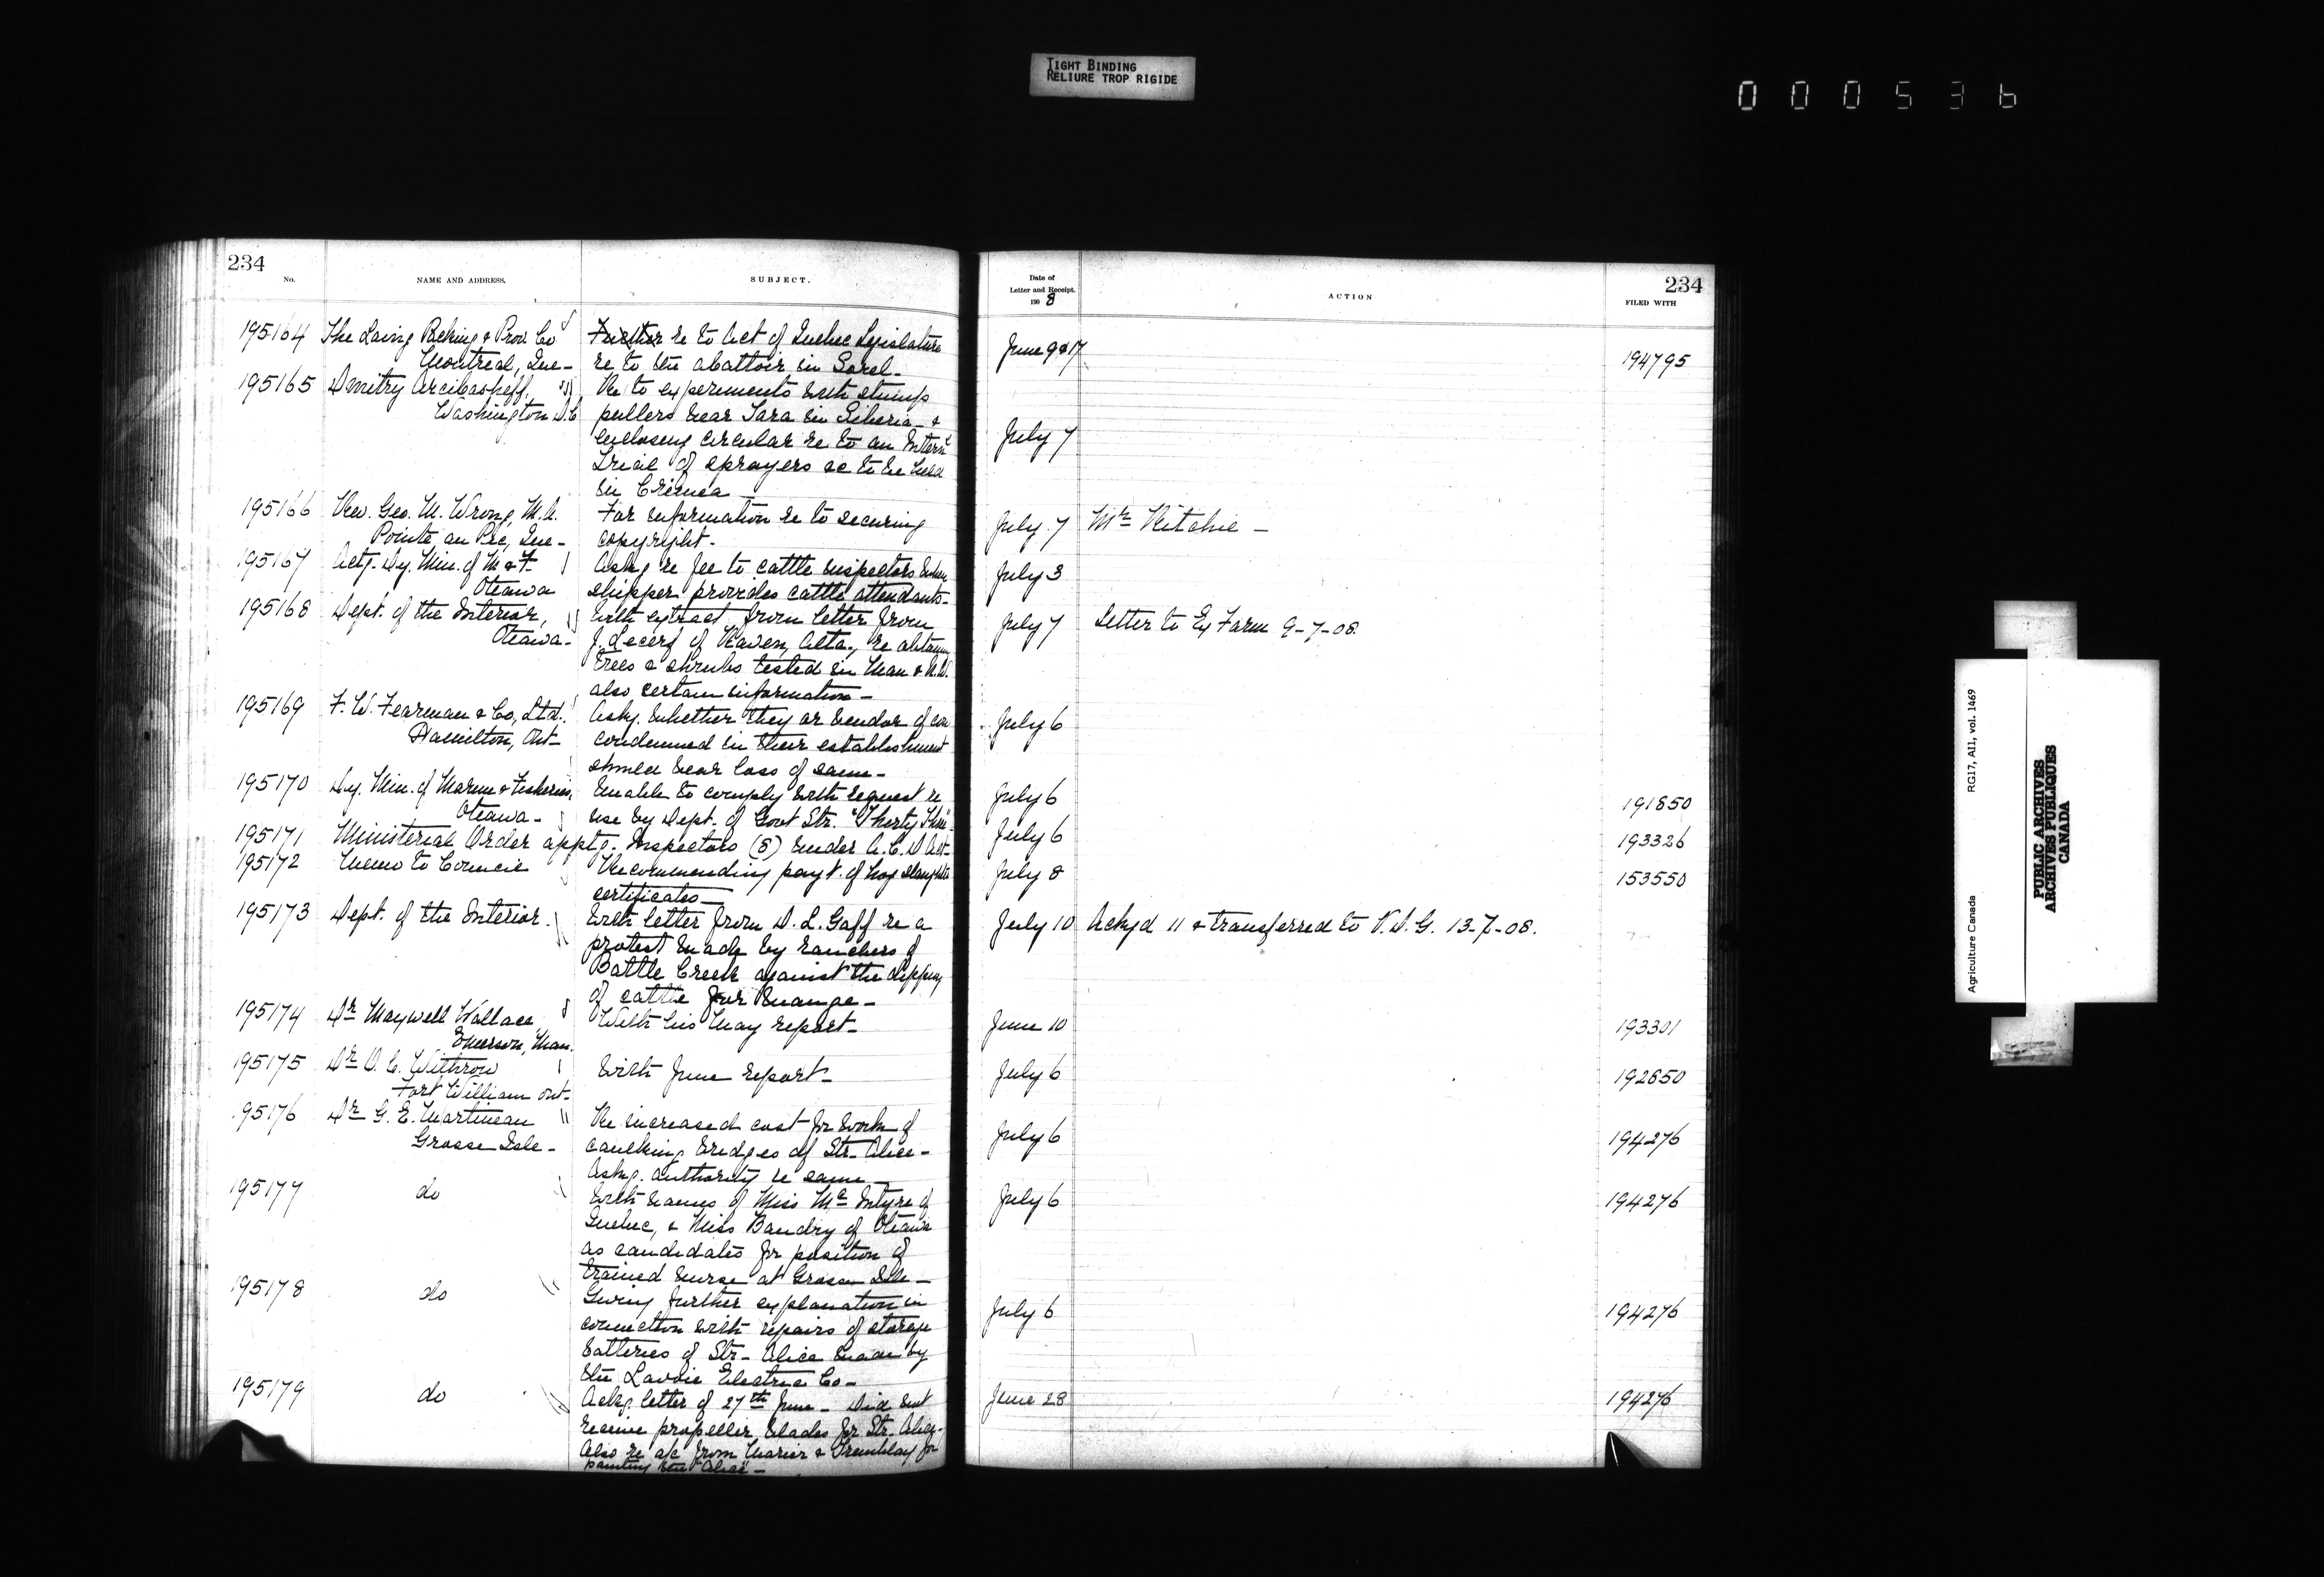 TIGHT BINDING
RELIURE TROP RIGIDE
000536
234
No.
NAME AND ADDRESS.
SUBJECT.
Date of
Letter and Receipt.
190 8
ACTION
234
FILED WITH
195164 The Laing Packing & Prov. Co Further re to Act of Quebec Legislature June 9 & 17 194795
Montreal, Que- re to the abattoir in Sorel-
195165 Dmitry Arcibasheff, Re to experiments with stump
Washington D.C. pullers near Tara in Siberia - &
enclosing circular re to an Intern'l July 7
Trial of sprayers &c to be held
in Crimea -
195166 Rev. Geo. M. Wrong, M.A. For information re to securing July 7 Mr Ritchie -
Pointe au Pic, Que- copyright-
195167 Actg. Dy. Min. of M & F. Askg re fee to cattle inspectors when July 3
Ottawa shipper provides cattle attendants-
195168 Dept. of the Interior, With extract from letter from July 7 Letter to Ex Farm 9-7-08.
Ottawa- J. Lecerf of Raven, Alta., re obtaining
trees & shrubs tested in Man & N.W.
also certain information-
195169 F. W. Fearman & Co, Ltd. Askg. whether they or vendor of cow July 6
Hamilton, Ont- condemned in their establishment
should bear loss of same-
195170 Dy. Min. of Marine & Fisheries, Unable to comply with request re July 6 191850
Ottawa- use by Dept. of Govt Str. "Thirty Three"-
195171 Ministerial Order apptg. Inspectors (8) under A. C. D Act- July 6 193326
195172 Memo to Council Recommending payt. of hog slaughter July 8 153550
certificates-
195173 Dept. of the Interior. With letter from D. L. Gaff re a July 10 Ackgd 11 & transferred to V. D. G. 13-7-08.
protest made by ranchers of
Battle Creek against the dipping
of cattle for mange-
195174 Dr Maxwell Wallace, With his May report- June 10 193301
Emerson, Man.
195175 Dr O. C. Withrow With June report- July 6 192650
Fort William Ont-
195176 Dr G. E. Martineau Re increased cost for work of July 6 194276
Grosse Isle- caulking bridges of Str. Alice-
Askg. authority re same-
195177 do With names of Miss McIntyre of July 6 194276
Quebec, & Miss Baudry of Ottawa
as candidates for position of
trained nurse at Grosse Isle-
195178 do Giving further explanation in July 6 194276
connection with repairs of storage
batteries of Str- Alice made by
the Lavoie Electric Co-
195179 do Ackg. letter of 27th June- Did not June 28 194276
receive propeller blades for Str. Alice-
Also re a/c from Marier & Tremblay for
painting Str "Alice"-
Agriculture Canada RG17, AII, vol. 1469
PUBLIC ARCHIVES
ARCHIVES PUBLIQUES
CANADA